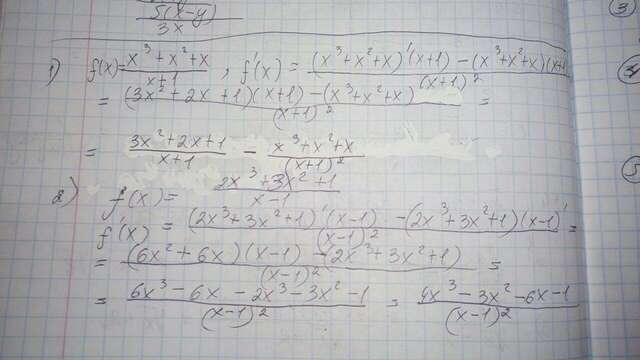 5(x-y) / 3x
3
1) f(x) = (x³+x²+x)/(x+1) , f'(x) = ((x³+x²+x)'(x+1) - (x³+x²+x)(x+1)/(x+1)²
= ((3x²+2x+1)(x+1) - (x³+x²+x))/(x+1)² =
= (3x²+2x+1)/(x+1) - (x³+x²+x)/(x+1)²
2) f(x) = (2x³+3x²+1)/(x-1)
f'(x) = ((2x³+3x²+1)'(x-1) - (2x³+3x²+1)(x-1)')/(x-1)² =
= ((6x²+6x)(x-1) - 2x³+3x²+1)/(x-1)² =
= (6x³-6x-2x³-3x²-1)/(x-1)² = (4x³-3x²-6x-1)/(x-1)²